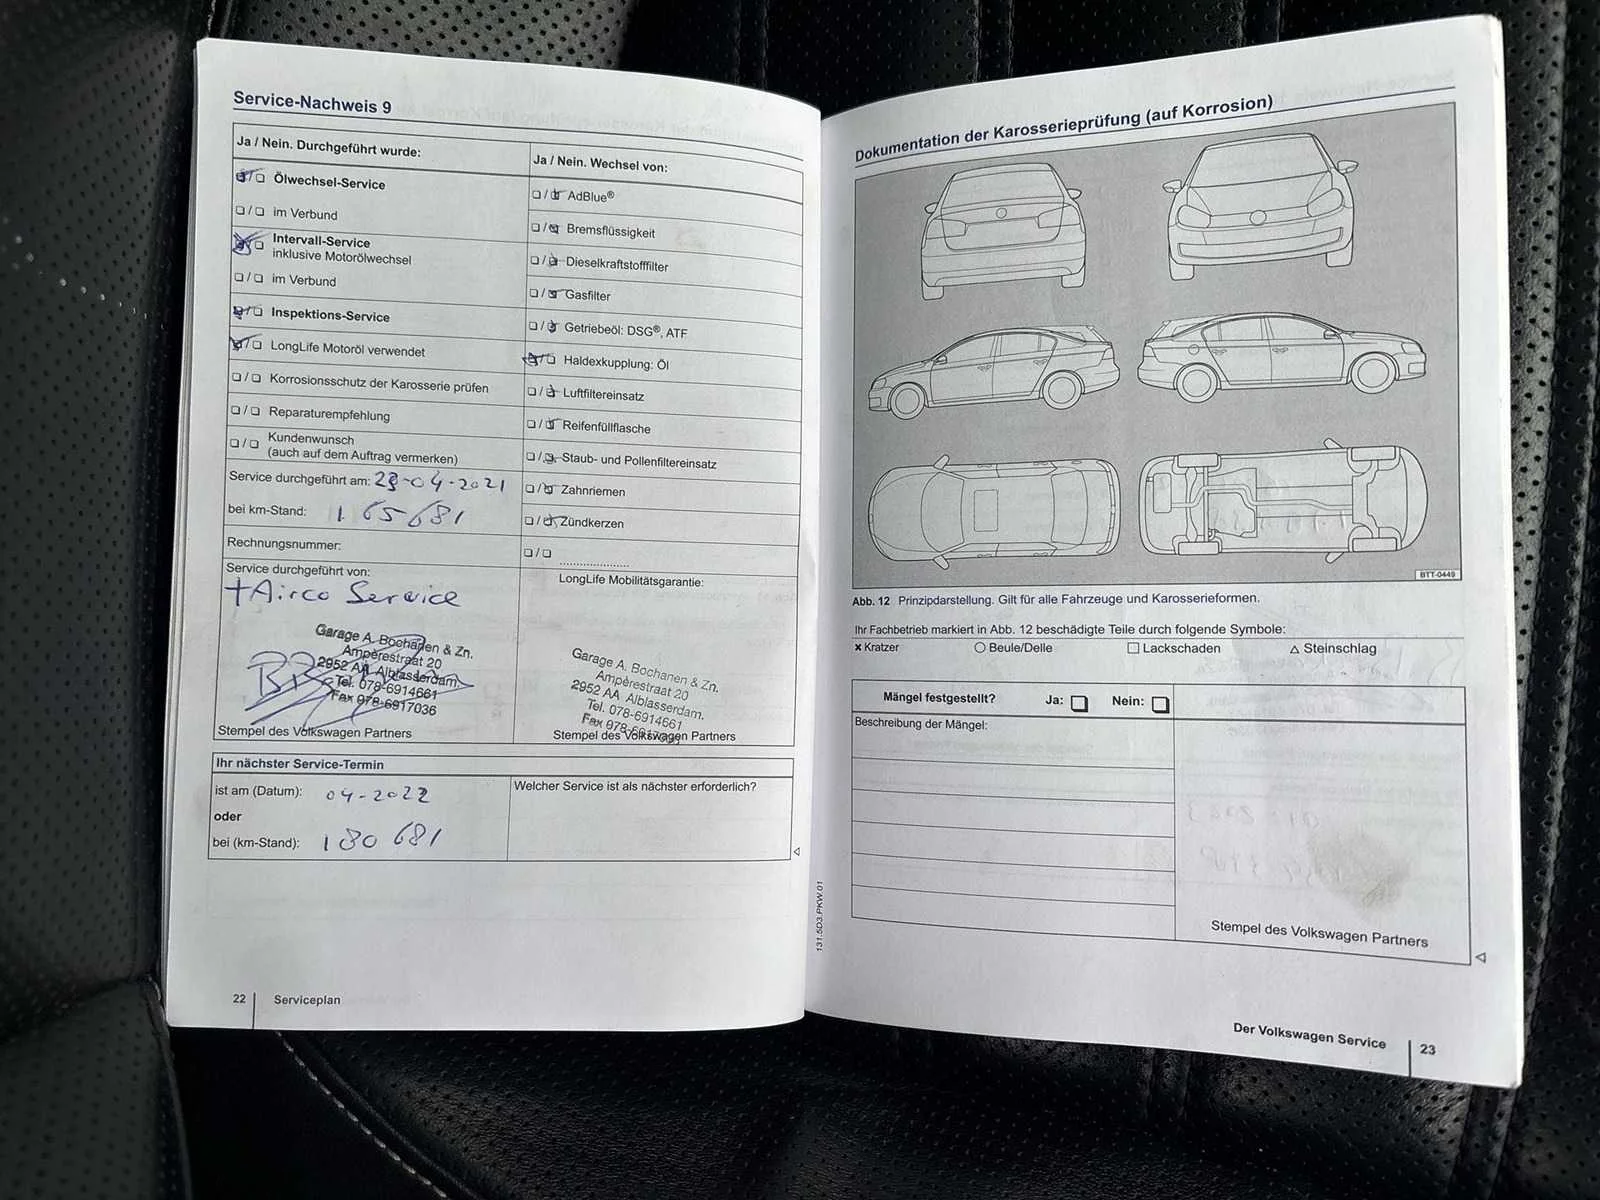 Service-Nachweis 9
Ja / Nein. Durchgeführt wurde:
Ölwechsel-Service
im Verbund
Intervall-Service
inklusive Motorölwechsel
im Verbund
Inspektions-Service
LongLife Motoröl verwendet
Korrosionsschutz der Karosserie prüfen
Reparaturempfehlung
Kundenwunsch
(auch auf dem Auftrag vermerken)
Service durchgeführt am: 23-04-2021
bei km-Stand: 165681
Rechnungsnummer:
Service durchgeführt von:
+Airco Service
Garage A. Bochanen & Zn.
Ampèrestraat 20
2952 AA Alblasserdam.
Tel. 078-6914661
Fax 078-6917036
Stempel des Volkswagen Partners
Ja / Nein. Wechsel von:
AdBlue®
Bremsflüssigkeit
Dieselkraftstofffilter
Gasfilter
Getriebeöl: DSG®, ATF
Haldexkupplung: Öl
Luftfiltereinsatz
Reifenfüllflasche
Staub- und Pollenfiltereinsatz
Zahnriemen
Zündkerzen
LongLife Mobilitätsgarantie:
Garage A. Bochanen & Zn.
Ampèrestraat 20
2952 AA Alblasserdam.
Tel. 078-6914661
Fax
Stempel des Volkswagen Partners
Ihr nächster Service-Termin
ist am (Datum): 04-2022
oder
bei (km-Stand): 180681
Welcher Service ist als nächster erforderlich?
22
Serviceplan
131.5D3.PKW.01
Dokumentation der Karosserieprüfung (auf Korrosion)
BTT-0449
Abb. 12 Prinzipdarstellung. Gilt für alle Fahrzeuge und Karosserieformen.
Ihr Fachbetrieb markiert in Abb. 12 beschädigte Teile durch folgende Symbole:
Kratzer
Beule/Delle
Lackschaden
Steinschlag
Mängel festgestellt? Ja: Nein:
Beschreibung der Mängel:
Stempel des Volkswagen Partners
Der Volkswagen Service
23